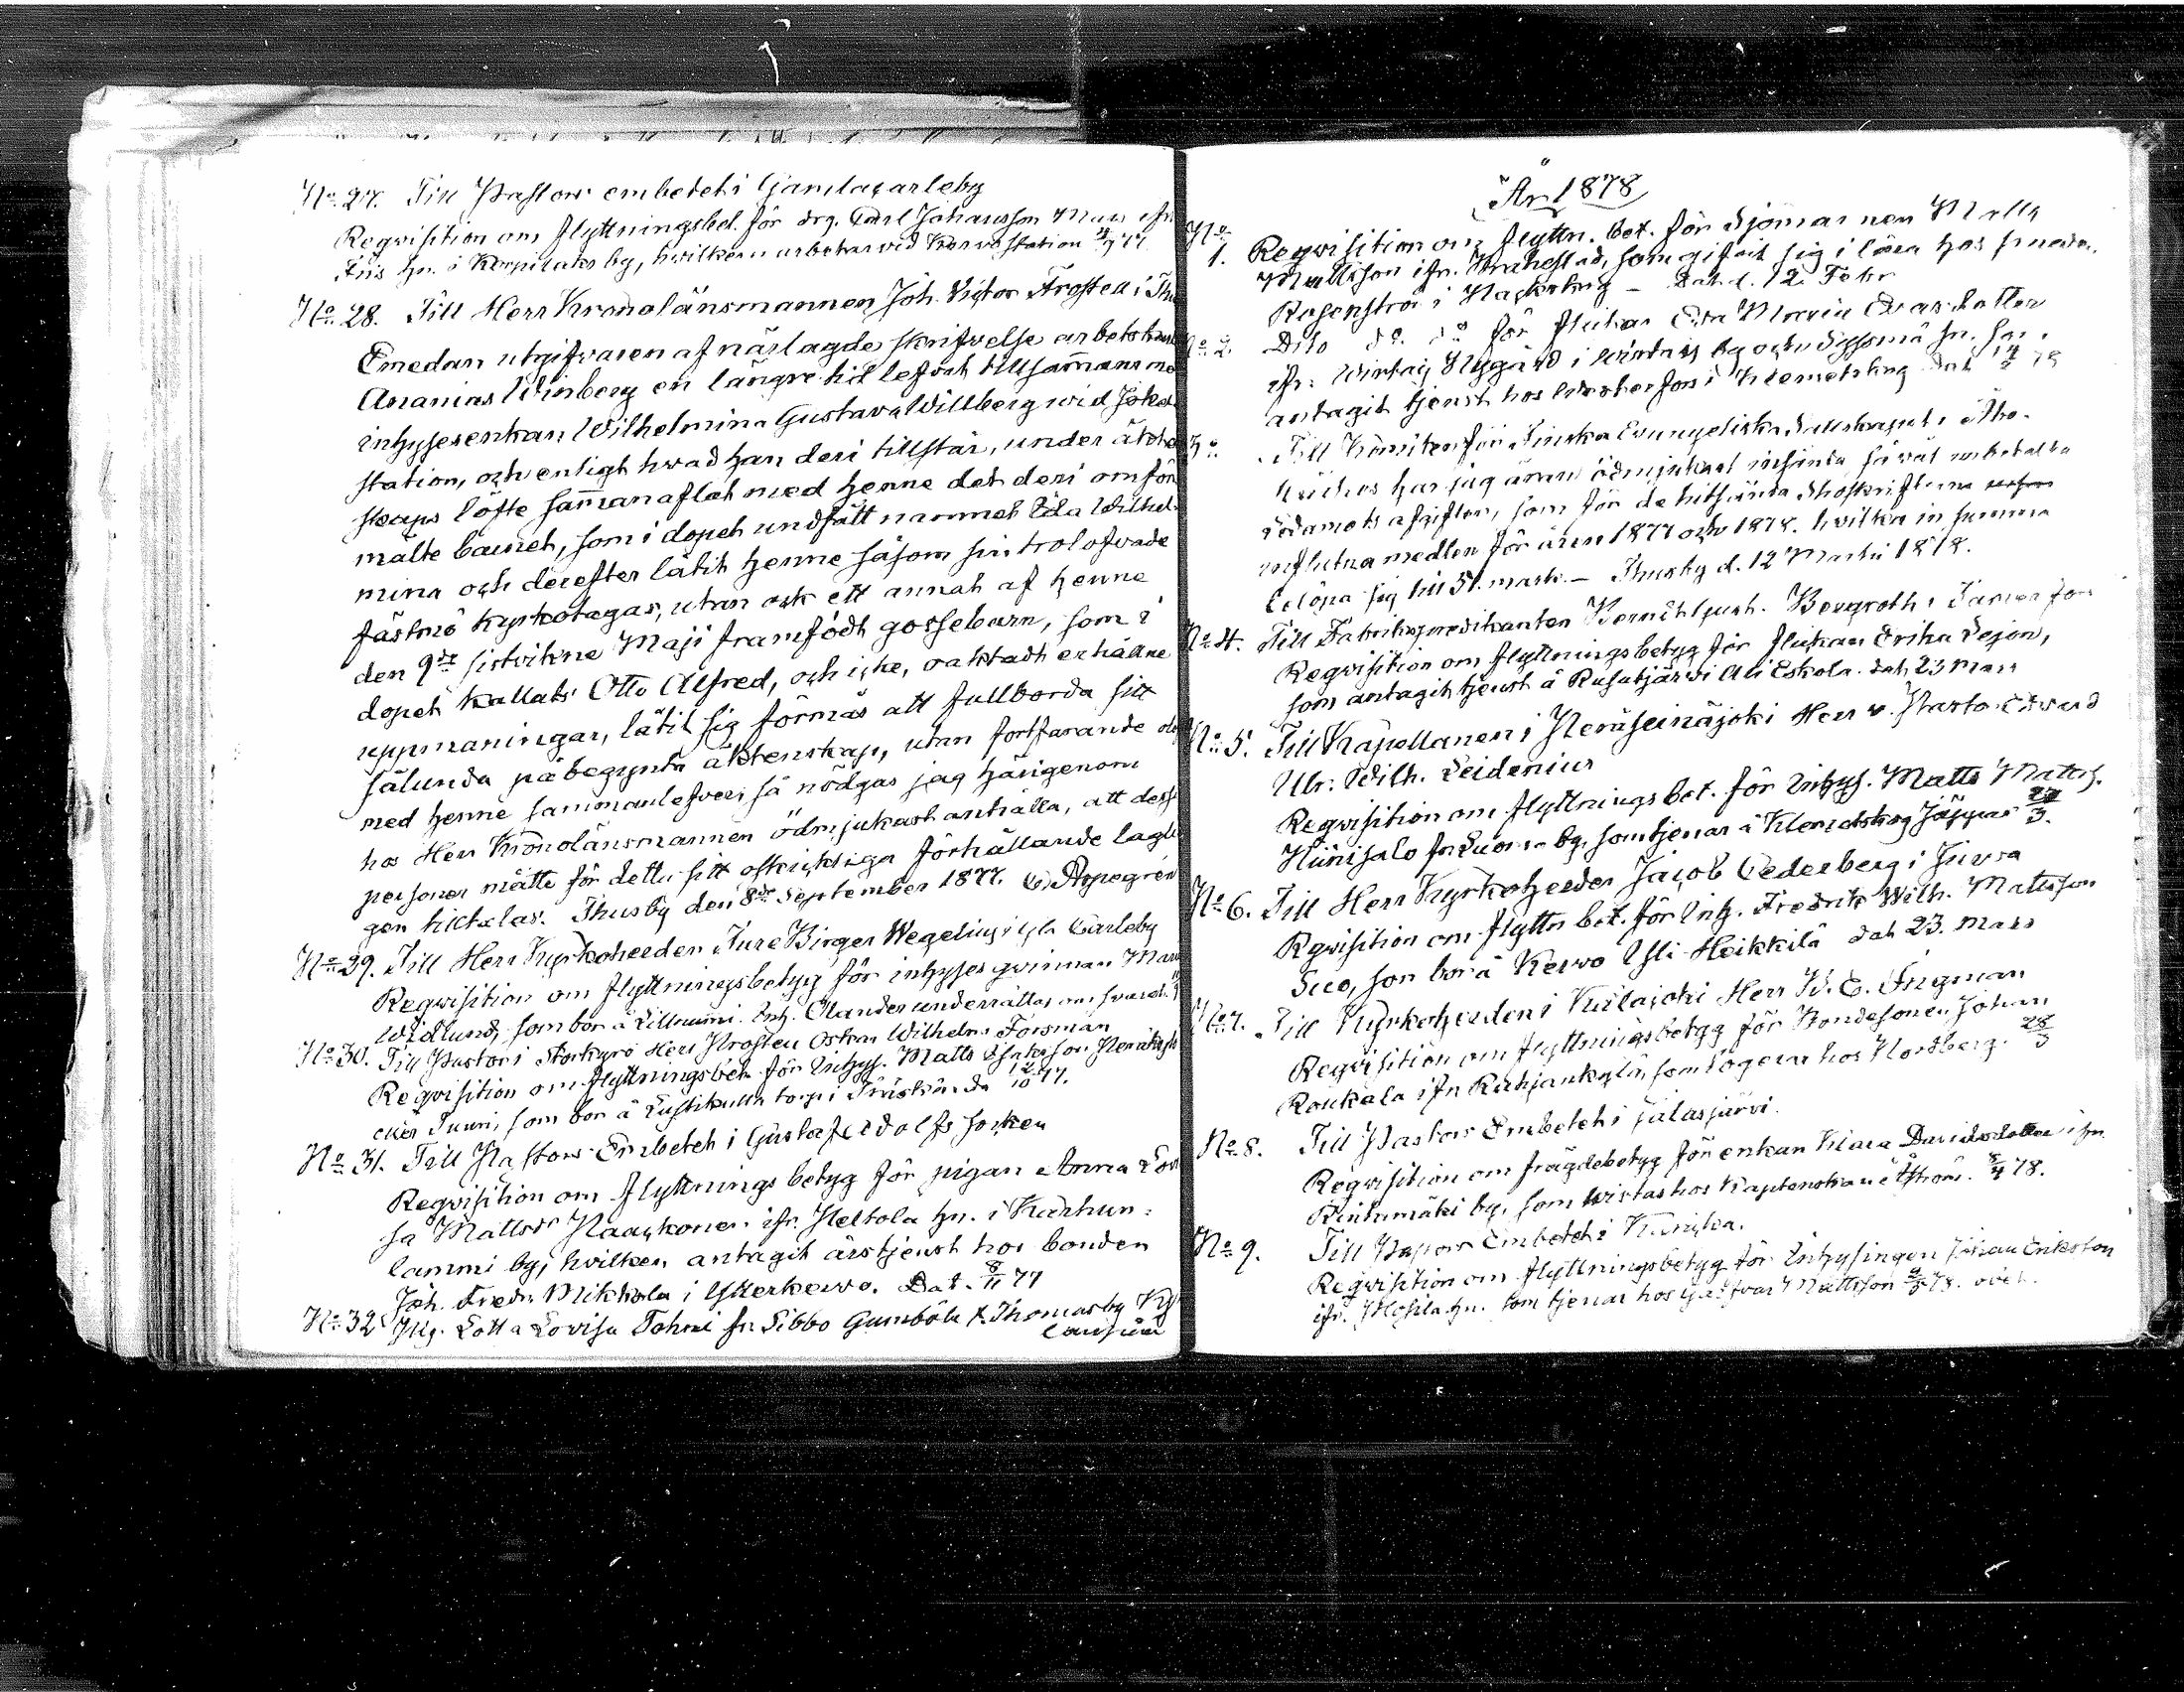 No 27. Till Pastors embetet i Gamlacarleby
Reqvisition om flyttningsbet. för drg. Carl Johansson
Fiis hn. i Korpilaks by, hvilken arbetar vid Kervo station 4/9 77
No 28. Till Herr Kronolänsmannen Joh. Victor Frostell i
Emedan utgifvaren af närlagde skrifvelse
Ananias Winberg en längre tid lefvat tillsammans
inhysesenkan Wilhelmina Gustava Willberg wid
station, och enligt hwad han deri tillstår, under
skaps löfte sammanaflat med henne det deri omför
mälte barnet, som i dopet undfått namnet Ida Wilhel-
mina och derefter låtit henne såsom sin trolofvade
fästmö kyrkotagas, utan ock ett annat af henne
den 9de sistvikne Maji framfödt gossebarn, som i
dopet kallats Otto Alfred, och icke, oaktadt erhållne
uppmaningar, låtit sig förmås att fullborda sitt
sålunda påbegynta äktenskap, utan fortfarande
med henne sammanlefver, så nödgas jag härigenom
hos Herr Kronolänsmannen ödmjukast anhålla, att
personer måtte för detta sitt oskickliga förhållande
gen tilltalas. Thusby den 8de September 1877.
No 29. Till Herr Kyrkoherden Ture Birger Wegelius i Gla Carleby
Reqvisition om flyttningsbetyg för inhyses qvinnan
Widlund, som bor å Lillnummi. Inh. Olander underrättas om svaret.
No 30. Till Pastor i Storkyro Herr Prosten Oskar Wilhelm Forsman
Reqvisition om flyttningsbet. för Inhys. Matts Isaksson
som bor å torp i Träskända 12/10 77.
No 31. Till Pastors-Embetet i Gustaf Adolfs socken
Reqvisition om flyttnings betyg för pigan Anna
sa Mattsdr Paackonen ifr. Heltola hn. i Karhun-
lammi by, hvilken antagit årstjenst hos bonden
Joh. Fredr. Mikkola i Ytterkervo. Dat. 8/11 77
No 32 Pig. Lotta Lovisa Tohni fr Sibbo Gumböle
År 1878
No
1. Reqvisition om flyttn. bet. för Sjömannen Matts
Mattsson ifr. Brahestad, som gifvit sig i lära hos
i Dat. d. 12 Febr
No 2. Dito do. do för flickan Eva Maria
ifr. i by och hn.
antagit tjenst hos i Klemetskog dat.
3o Till Komiten för Finska Evangeliska Sällskapet i Åbo.
har jag äran ödmjukast insända så väl
ledamots afgifter, som för de hitsända skrifterna
influtna medlen för åren 1877 och 1878. hvilka in summa
belöpa sig till 51. mark. – Thusby d. 12 Martii 1878.
No 4. Till Fabrikspredikanten Berndt Gust. Bergroth i Tammerfors
Reqvisition om flyttningsbetyg för flickan Erika Lejon,
som antagit tjenst å Rusutjärwi Ali Eskola. dat. 23 Mars
No 5. Till Kapellanen i Peräseinäjoki Herr v. Pastor Edvard
Ulr. Wilh. Leidenius
Reqvisition om flyttningsbet. för Inhys. Matts Matts.
Hünisalo fr. by, som tjenar å Klemetskog 23/3.
No 6. Till Herr Kyrkoherden Jacob Cederberg i Jurva
Rqvisition om flyttn bet. för Inh. Fredrik Wilh. Mattsson
som bor å Kervo Yli-Heikkilä dat 23. Mars
No 7. Till Kyrkoherden i Kuilajoki Herr K. E. Ingman
Reqvisition om flyttningsbetyg för Bondesonen Johan
Roukala ifr som lägrar hos Nordberg. 28/3
No 8. Till Pastors Embetet i Jalasjärvi.
Reqvisition om frägdebetyg för enkan Klara Davidsdotter ifr.
by, som wistas hos Kaptenskan 8/4 78.
No 9. Till Pastors Embetet i
Reqvisition om flyttningsbetyg för Inhysingen Johan Eriksson
ifr. hn. som tjenar hos Mattsson